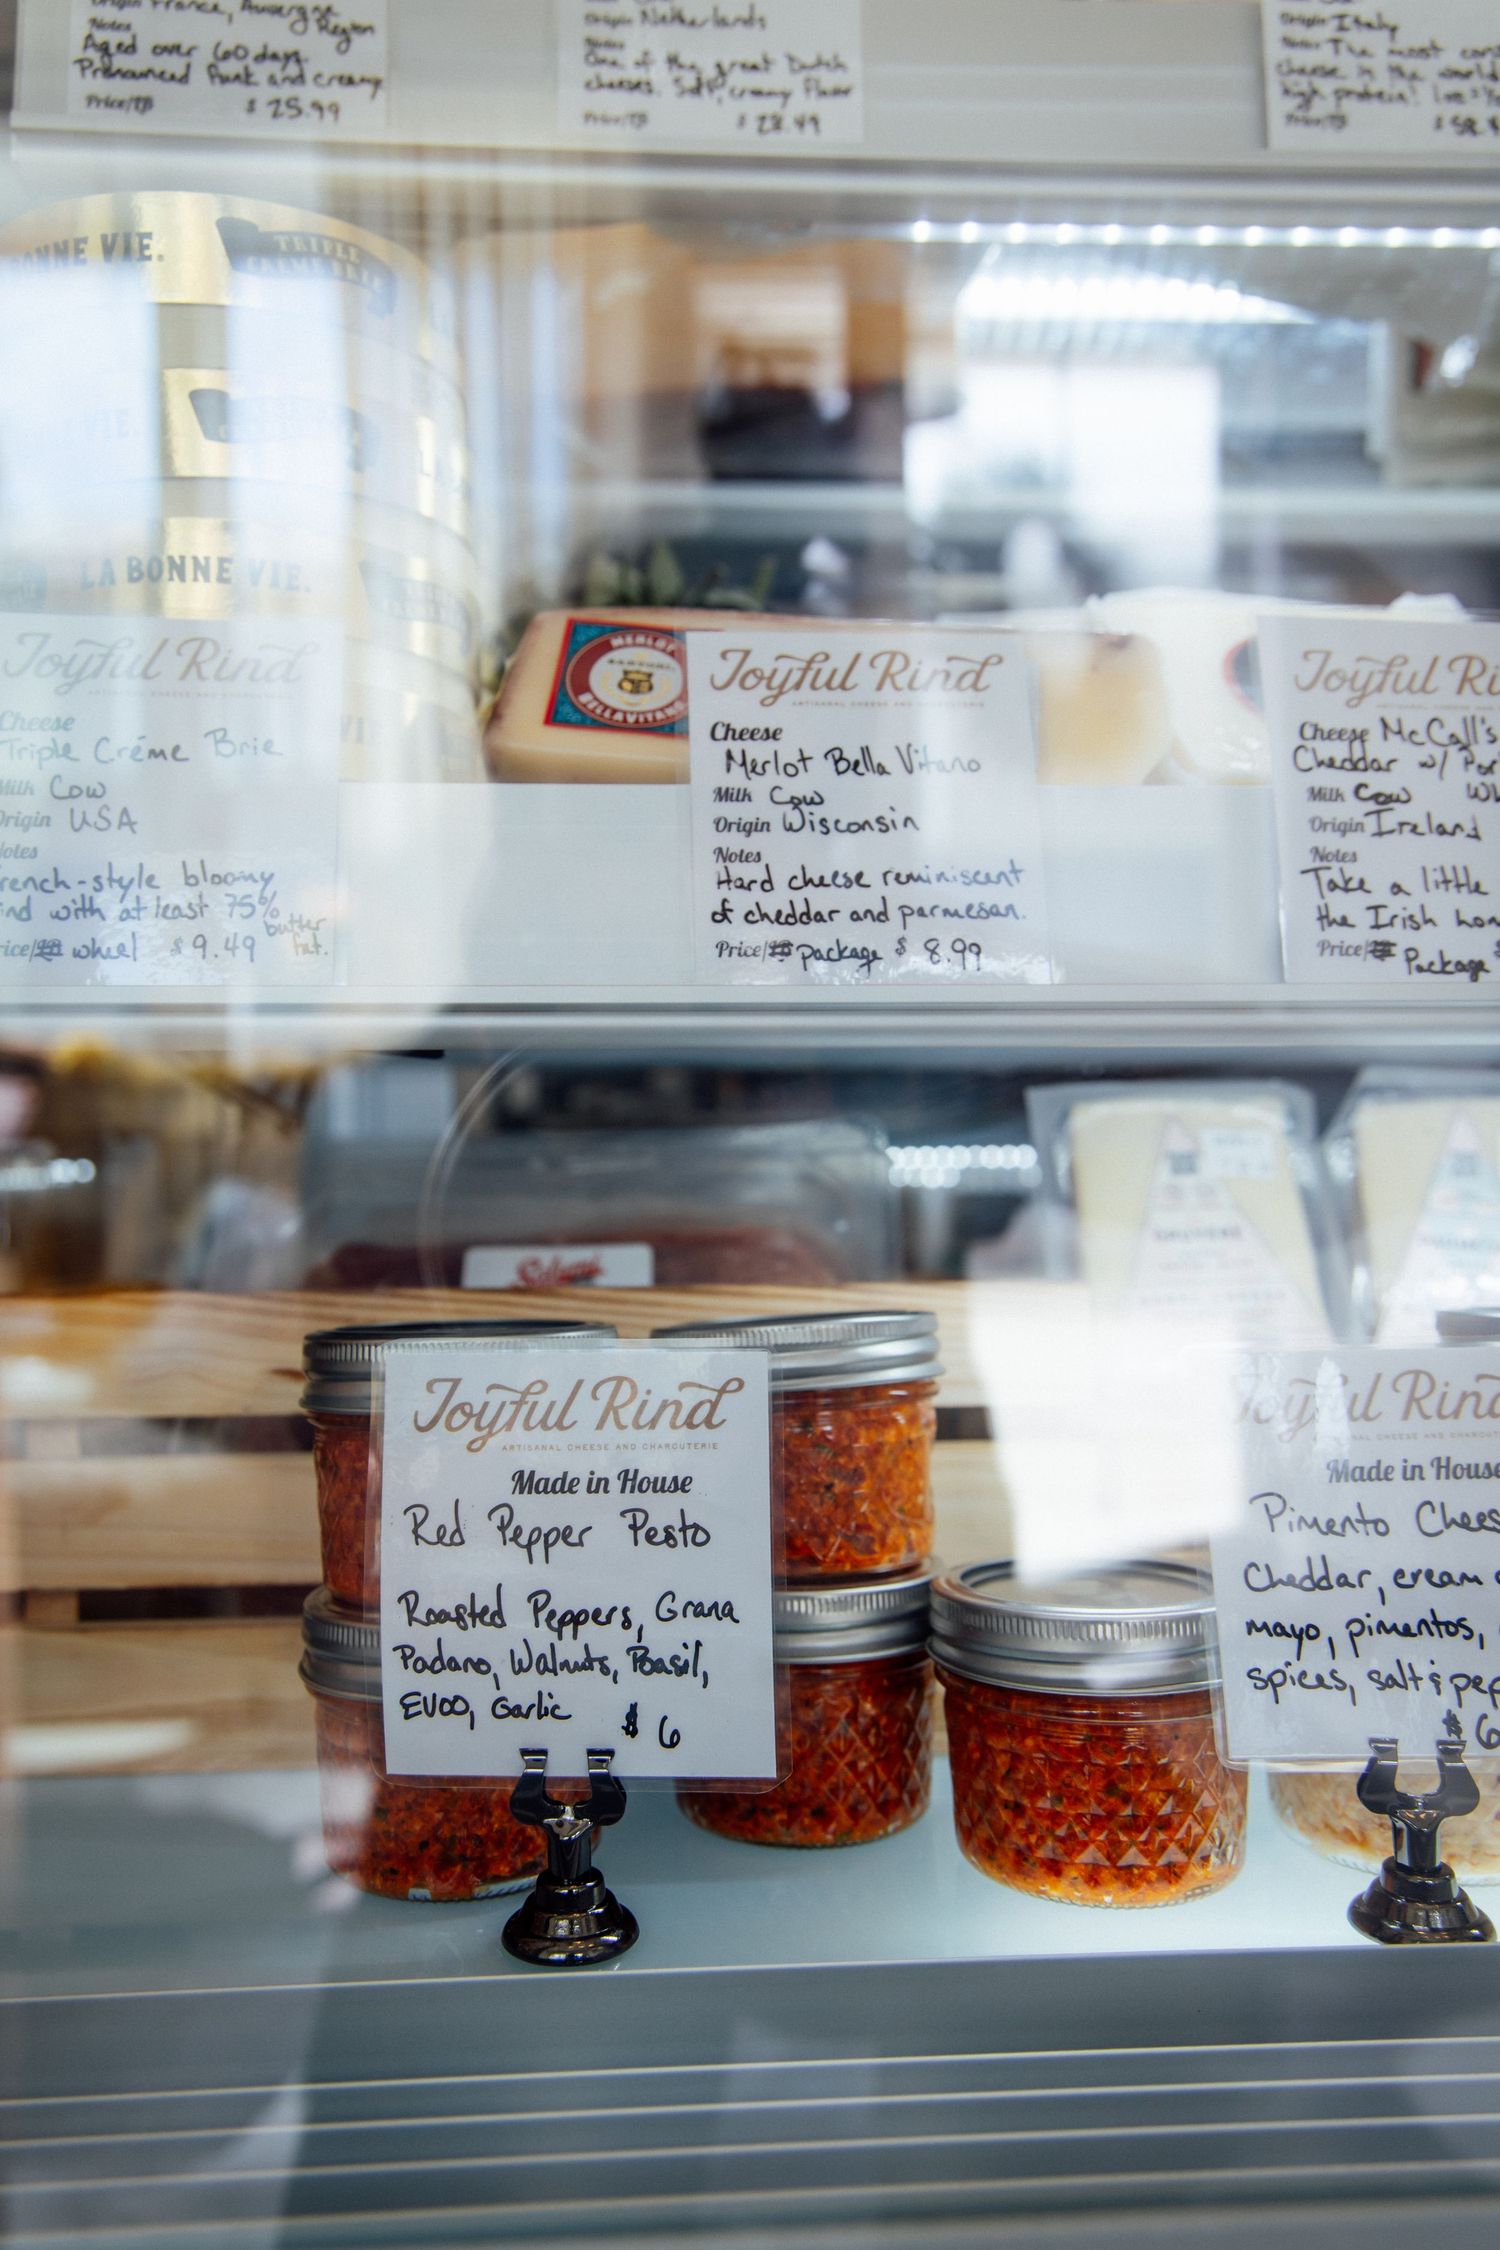 Origin France, Auvergne
Region
Notes
Aged over 60 days.
Pronounced funk and creamy
Price/LB $25.99
Origin Netherlands
Notes
One of the great Dutch
cheeses. Soft, creamy flavor
Price/LB
Origin Italy
Notes The most
cheese in the world
high protein!
Price/LB
BONNE VIE.
TRIPLE
CRÈME BRIE
VIE.
LA BONNE VIE.
Joyful Rind
Cheese
Triple Créme Brie
Milk Cow
Origin USA
Notes
rench-style bloomy
ind with at least 75%
butter
fat.
rice/LB wheel $9.49
MERLOT
SARTORI
BELLAVITANO
Joyful Rind
ARTISANAL CHEESE AND CHARCUTERIE
Cheese
Merlot Bella Vitano
Milk Cow
Origin Wisconsin
Notes
Hard cheese reminiscent
of cheddar and parmesan.
Price/LB package $ 8.99
Joyful Ri
Cheese McCall's
Cheddar w/ Por
Milk Cow
Origin Ireland
Notes
Take a little
the Irish hom
Price/LB Package $
Joyful Rind
ARTISANAL CHEESE AND CHARCUTERIE
Made in House
Red Pepper Pesto
Roasted Peppers, Grana
Padano, Walnuts, Basil,
EVOO, Garlic
$ 6
Joyful Rind
Made in House
Pimento Chees
Cheddar, cream
mayo, pimentos,
spices, salt & pep
$6